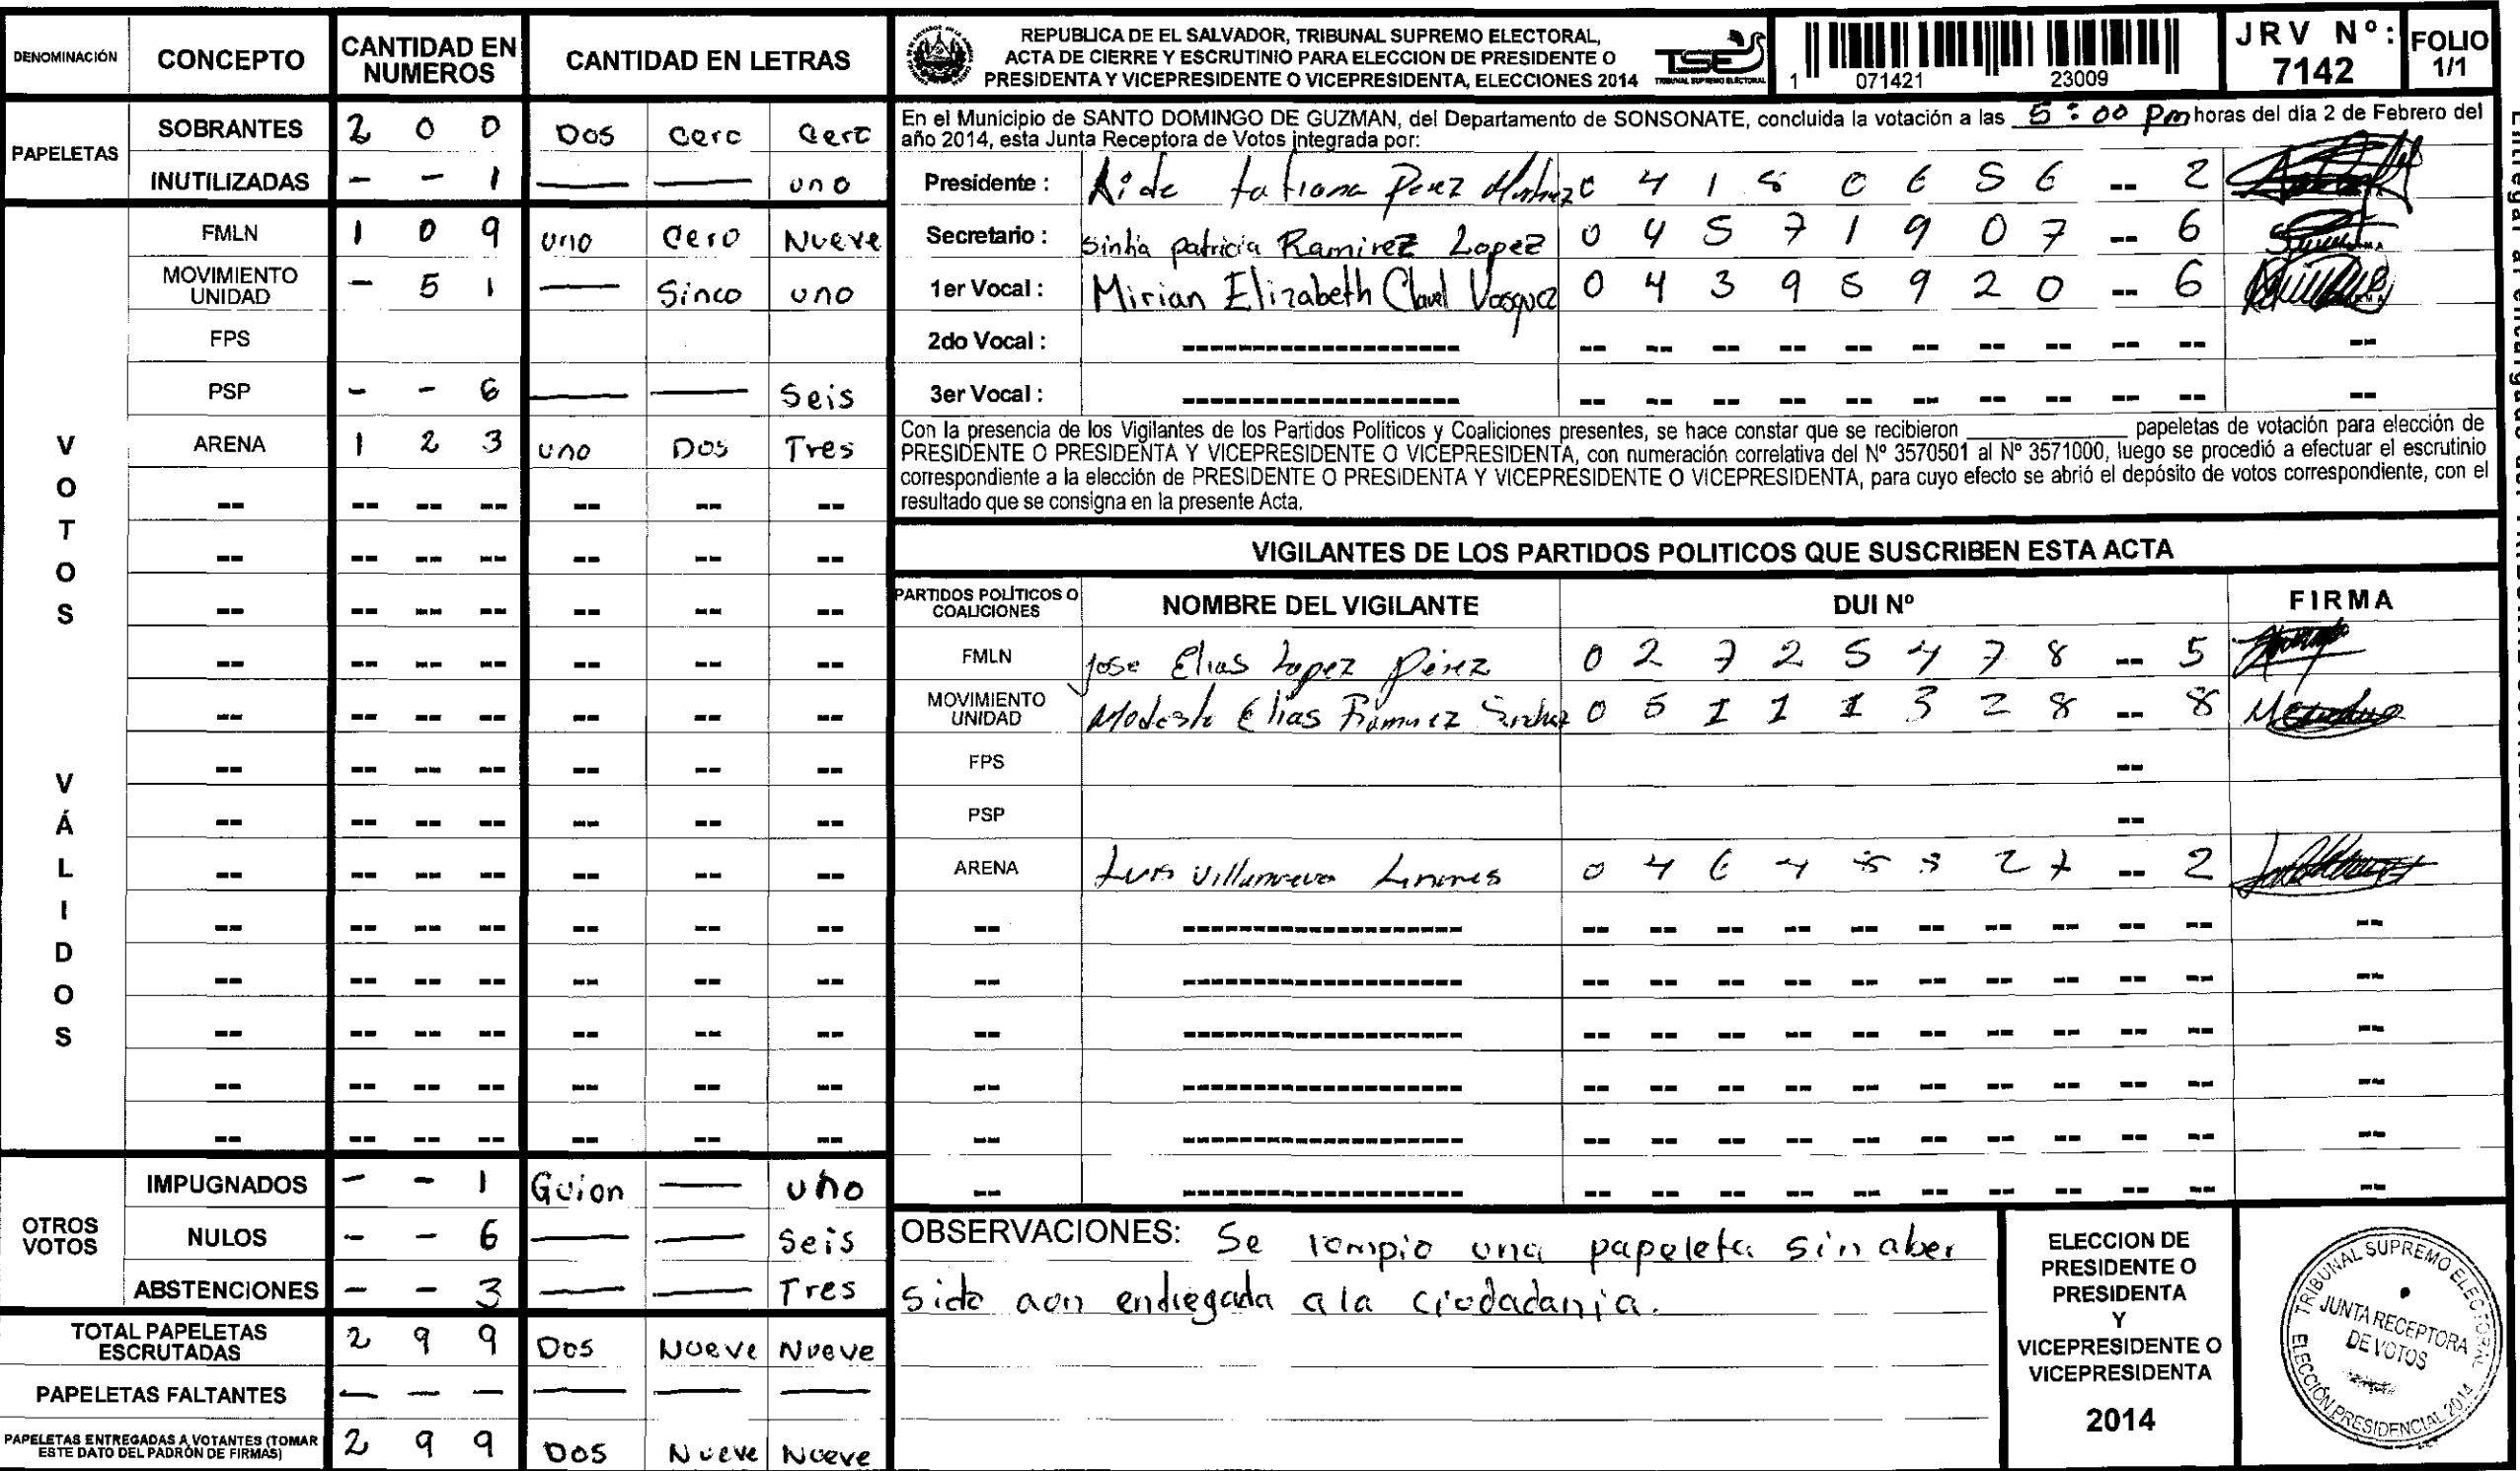 DENOMINACIÓN CONCEPTO CANTIDAD EN NUMEROS CANTIDAD EN LETRAS
PAPELETAS
SOBRANTES 2 0 0 Dos Cero Cero
INUTILIZADAS - - 1 — — uno
VOTOS VÁLIDOS
FMLN 1 0 9 uno Cero Nueve
MOVIMIENTO UNIDAD - 5 1 — Sinco uno
FPS
PSP - - 6 — — Seis
ARENA 1 2 3 uno Dos Tres
OTROS VOTOS
IMPUGNADOS - - 1 Guion — uno
NULOS - - 6 — — Seis
ABSTENCIONES - - 3 — — Tres
TOTAL PAPELETAS ESCRUTADAS 2 9 9 Dos Nueve Nueve
PAPELETAS FALTANTES - - - — — —
PAPELETAS ENTREGADAS A VOTANTES (TOMAR ESTE DATO DEL PADRÓN DE FIRMAS) 2 9 9 Dos Nueve Nueve
REPUBLICA DE EL SALVADOR, TRIBUNAL SUPREMO ELECTORAL,
ACTA DE CIERRE Y ESCRUTINIO PARA ELECCION DE PRESIDENTE O
PRESIDENTA Y VICEPRESIDENTE O VICEPRESIDENTA, ELECCIONES 2014
TSE
TRIBUNAL SUPREMO ELECTORAL
1 071421 23009
JRV Nº: 7142
FOLIO 1/1
En el Municipio de SANTO DOMINGO DE GUZMAN, del Departamento de SONSONATE, concluida la votación a las 5:00 pm horas del día 2 de Febrero del
año 2014, esta Junta Receptora de Votos integrada por:
Presidente: Aide tatiana Perez 0 4 1 5 0 6 5 6 -- 2
Secretario: Sintia patricia Ramirez Lopez 0 4 5 7 1 9 0 7 -- 6
1er Vocal: Mirian Elizabeth Clavel Vasquez 0 4 3 9 5 9 2 0 -- 6
2do Vocal:
3er Vocal:
Con la presencia de los Vigilantes de los Partidos Políticos y Coaliciones presentes, se hace constar que se recibieron papeletas de votación para elección de
PRESIDENTE O PRESIDENTA Y VICEPRESIDENTE O VICEPRESIDENTA, con numeración correlativa del Nº 3570501 al Nº 3571000, luego se procedió a efectuar el escrutinio
correspondiente a la elección de PRESIDENTE O PRESIDENTA Y VICEPRESIDENTE O VICEPRESIDENTA, para cuyo efecto se abrió el depósito de votos correspondiente, con el
resultado que se consigna en la presente Acta.
VIGILANTES DE LOS PARTIDOS POLITICOS QUE SUSCRIBEN ESTA ACTA
PARTIDOS POLÍTICOS O COALICIONES NOMBRE DEL VIGILANTE DUI Nº FIRMA
FMLN Jose Elias Lopez Pérez 0 2 7 2 5 4 7 8 -- 5
MOVIMIENTO UNIDAD Modesto Elias Ramirez 0 5 1 1 1 3 2 8 -- 8
FPS --
PSP --
ARENA Luis Villanueva Linares 0 4 6 4 5 3 2 7 -- 2
OBSERVACIONES: Se rompio una papeleta sin aber
sido aon entregada a la ciudadania.
ELECCION DE
PRESIDENTE O
PRESIDENTA
Y
VICEPRESIDENTE O
VICEPRESIDENTA
2014
TRIBUNAL SUPREMO ELECTORAL
JUNTA RECEPTORA
DE VOTOS
ELECCIÓN PRESIDENCIAL 2014